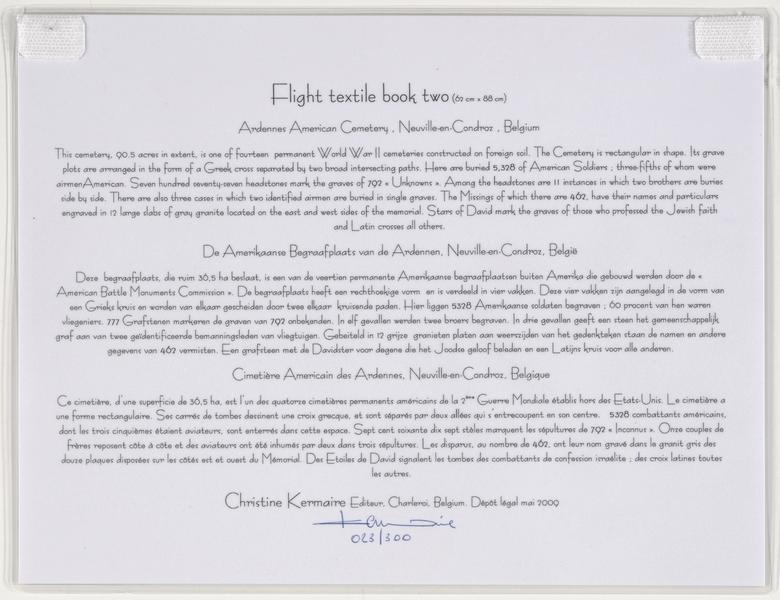 Flight textile book two (67 cm x 88 cm)
Ardennes American Cemetery , Neuville-en-Condroz , Belgium
This cemetery, 90.5 acres in extent, is one of fourteen permanent World War II cemeteries constructed on foreign soil. The Cemetery is rectangular in shape. Its grave
plots are arranged in the form of a Greek cross separated by two broad intersecting paths. Here are buried 5,328 of American Soldiers ; three-fifths of whom were
airmenAmerican. Seven hundred seventy-seven headstones mark the graves of 792 « Unknowns ». Among the headstones are 11 instances in which two brothers are buries
side by side. There are also three cases in which two identified airmen are buried in single graves. The Missings of which there are 462, have their names and particulars
engraved in 12 large slabs of gray granite located on the east and west sides of the memorial. Stars of David mark the graves of those who professed the Jewish faith
and Latin crosses all others.
De Amerikaanse Begraafplaats van de Ardennen, Neuville-en-Condroz, België
Deze begraafplaats, die ruim 36,5 ha beslaat, is een van de veertien permanente Amerikaanse begraafplaatsen buiten Amerika die gebouwd werden door de «
American Battle Monuments Commission ». De begraafplaats heeft een rechthoekige vorm en is verdeeld in vier vakken. Deze vier vakken zijn aangelegd in de vorm van
een Grieks kruis en worden van elkaar gescheiden door twee elkaar kruisende paden. Hier liggen 5328 Amerikaanse soldaten begraven ; 60 procent van hen waren
vliegeniers. 777 Grafstenen markeren de graven van 792 onbekenden. In elf gevallen werden twee broers begraven. In drie gevallen geeft een steen het gemeenschappelijk
graf aan van twee geïdentificeerde bemanningsleden van vliegtuigen. Gebeiteld in 12 grijze granieten platen aan weerszijden van het gedenkteken staan de namen en andere
gegevens van 462 vermisten. Een grafsteen met de Davidster voor degene die het Joodse geloof beleden en een Latijns kruis voor alle anderen.
Cimetière Americain des Ardennes, Neuville-en-Condroz, Belgique
Ce cimetière, d'une superficie de 36,5 ha, est l'un des quatorze cimetières permanents américains de la 2ème Guerre Mondiale établis hors des Etats-Unis. Le cimetière a
une forme rectangulaire. Ses carrés de tombes dessinent une croix grecque, et sont séparés par deux allées qui s'entrecoupent en son centre. 5328 combattants américains,
dont les trois cinquièmes étaient aviateurs, sont enterrés dans cette espace. Sept cent soixante dix sept stèles marquent les sépultures de 792 « Inconnus ». Onze couples de
frères reposent côte à côte et des aviateurs ont été inhumés par deux dans trois sépultures. Les disparus, au nombre de 462, ont leur nom gravé dans le granit gris des
douze plaques disposées sur les côtés est et ouest du Mémorial. Des Etoiles de David signalent les tombes des combattants de confession israélite ; des croix latines toutes
les autres.
Christine Kermaire Editeur, Charleroi, Belgium. Dépôt légal mai 2009
023/300